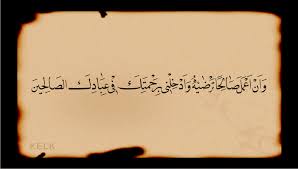 وَاَنْ اَعْمَلَ صَالِحًا تَرْضٰيهُ وَاَدْخِلْنٖى بِرَحْمَتِكَ فٖى عِبَادِكَ الصَّالِحٖينَ
KELK